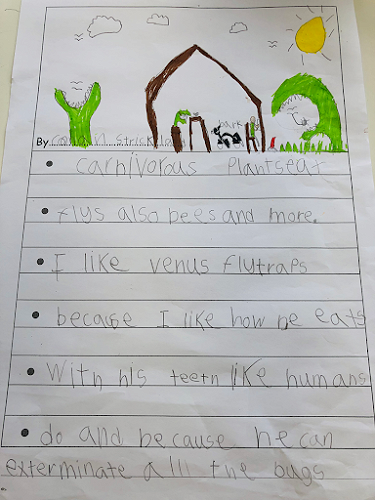 bark
By Strickla
Carnivorous Plantseat
flys also bees and more.
I like venus flytraps
because I like how he eats
With his teeth like humans
do and because he can
exterminate alll the bugs